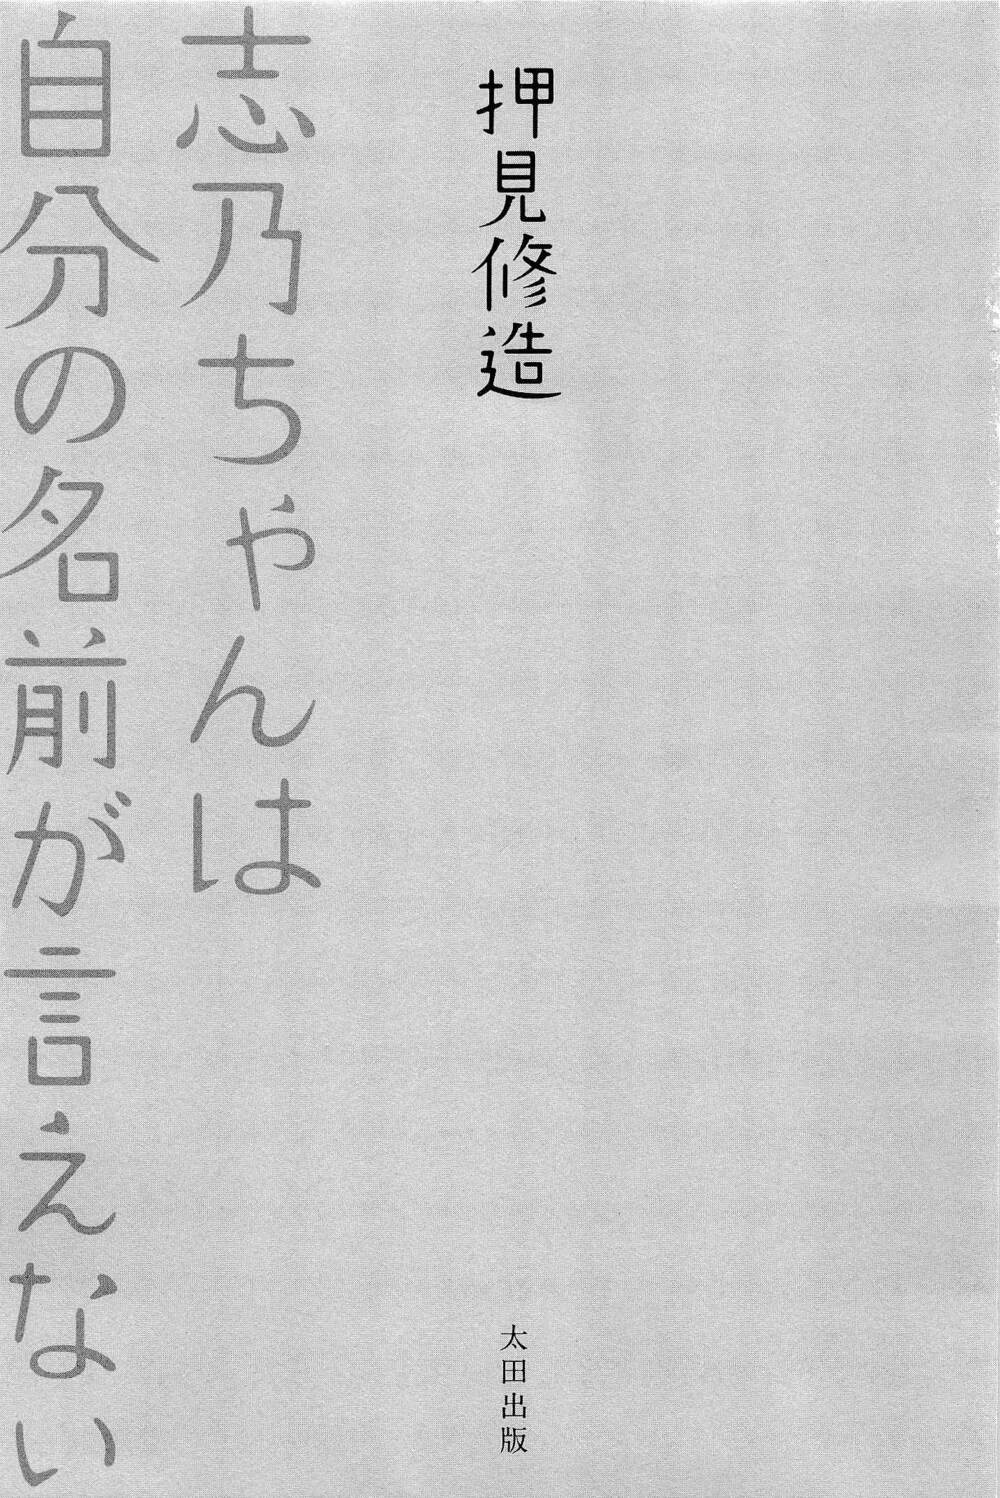 押見修造
志乃ちゃんは
自分の名前が言えない
太田出版